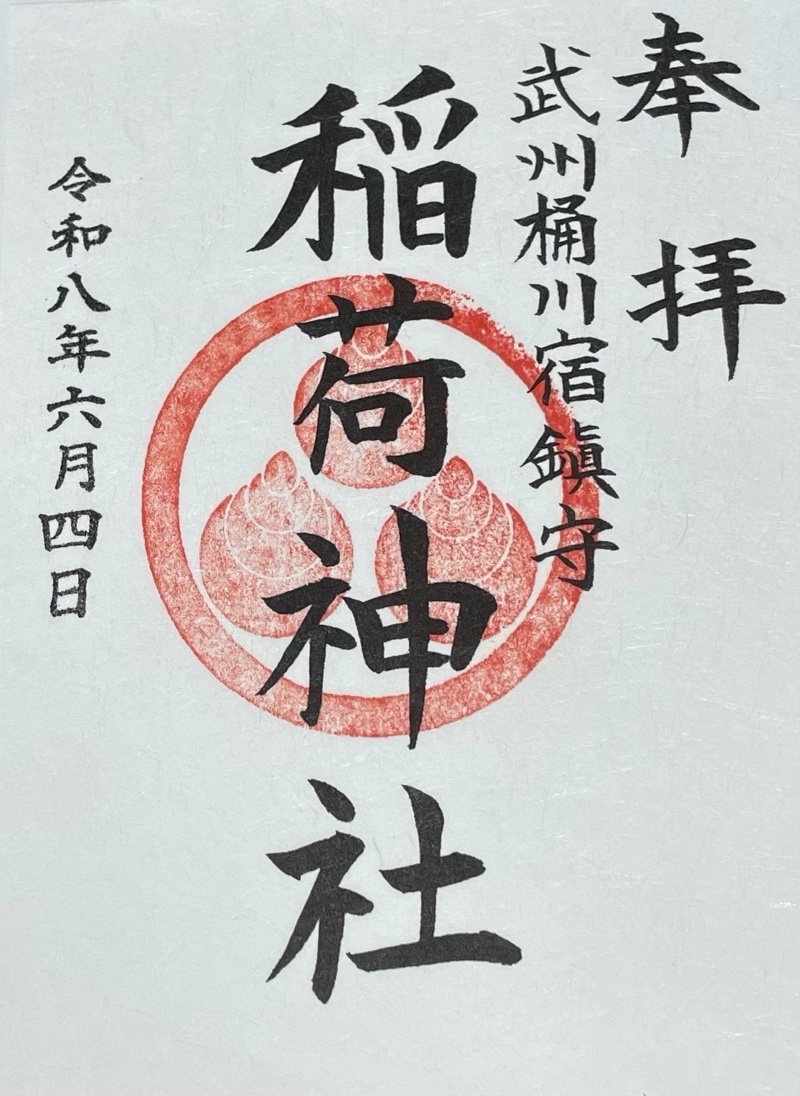 奉拝
武州桶川宿鎮守
稲荷神社
令和八年六月四日